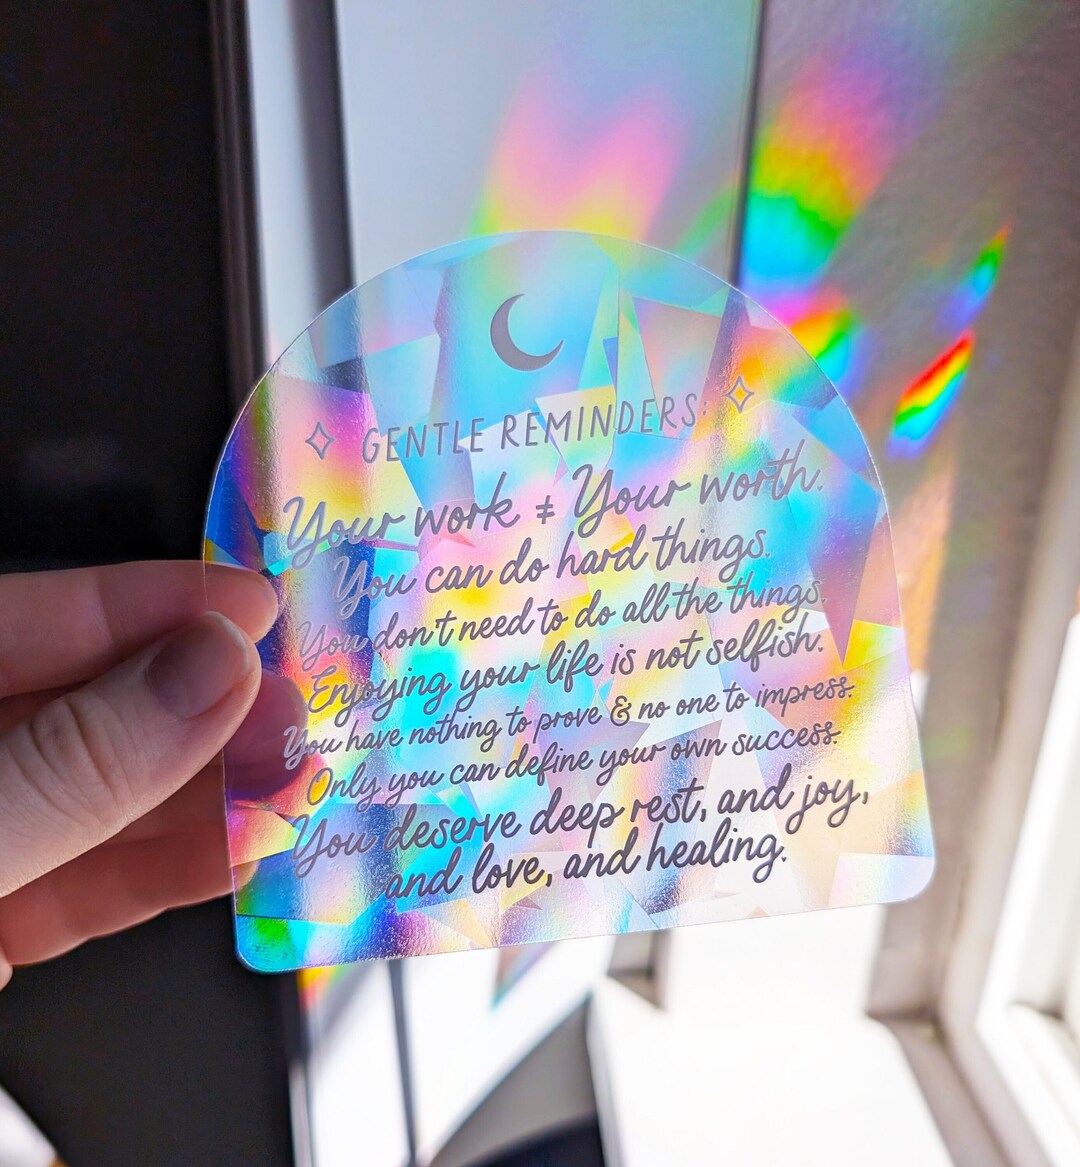 GENTLE REMINDERS:
Your work ≠ Your worth.
You can do hard things.
You don't need to do all the things.
Enjoying your life is not selfish.
You have nothing to prove & no one to impress.
Only you can define your own success.
You deserve deep rest, and joy,
and love, and healing.